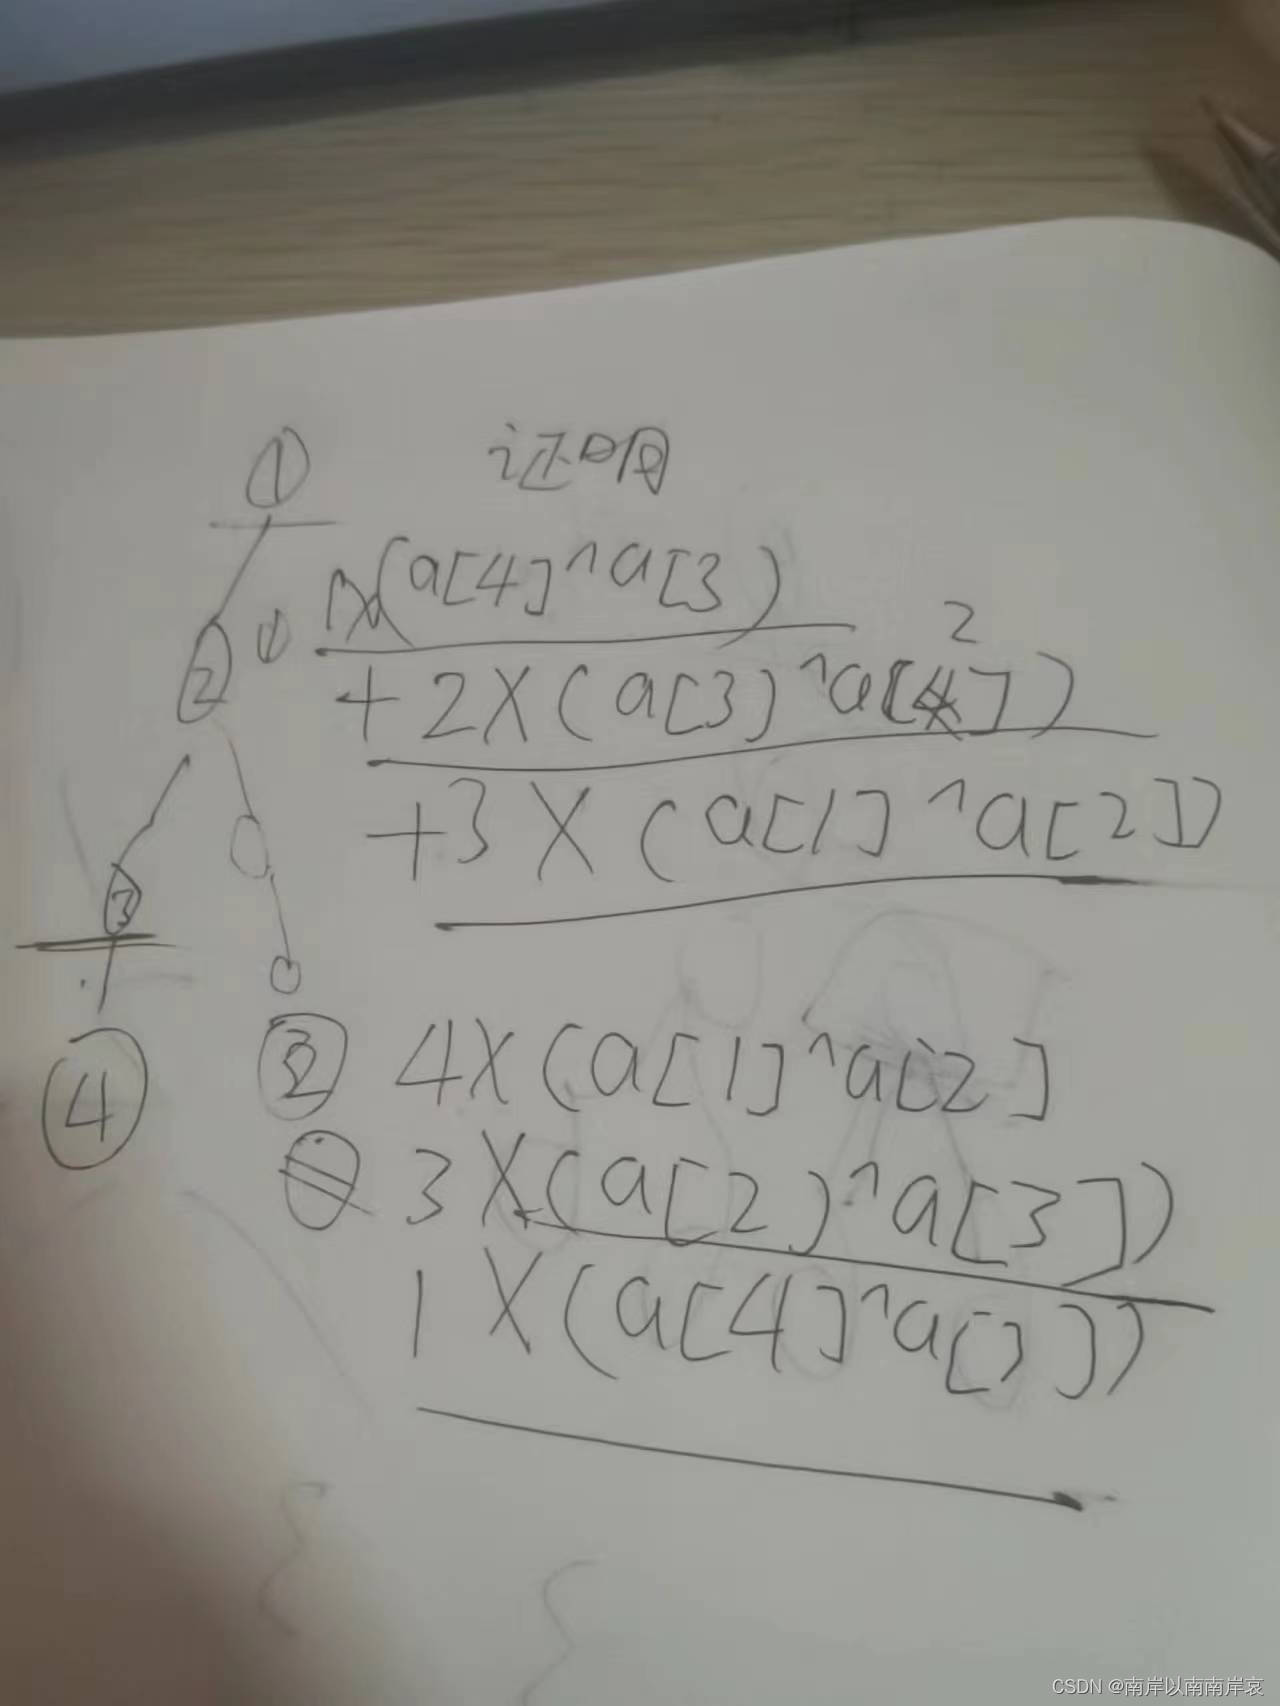 ① 证明
1X(a[4]^a[3)
② ① 2
+2X(a[3]^a[4])
+3X(a[1]^a[2])
③
④ ② 4X(a[1]^a[2]
3X(a[2)^a[3])
1X(a[4]^a[3])
CSDN @南岸以南南岸哀